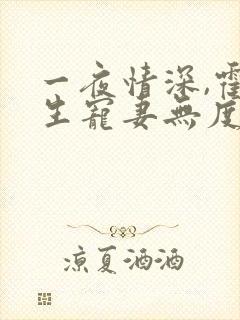 一夜情深,霍
生寵妻無度
涼夏酒酒